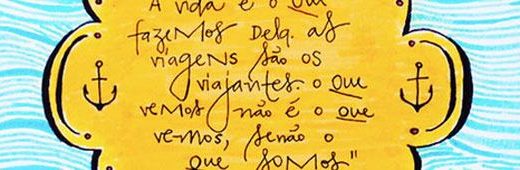 A vida é o que
fazemos dela. as
viagens são os
viajantes. o que
vemos não é o que
vemos, senão o
que somos"